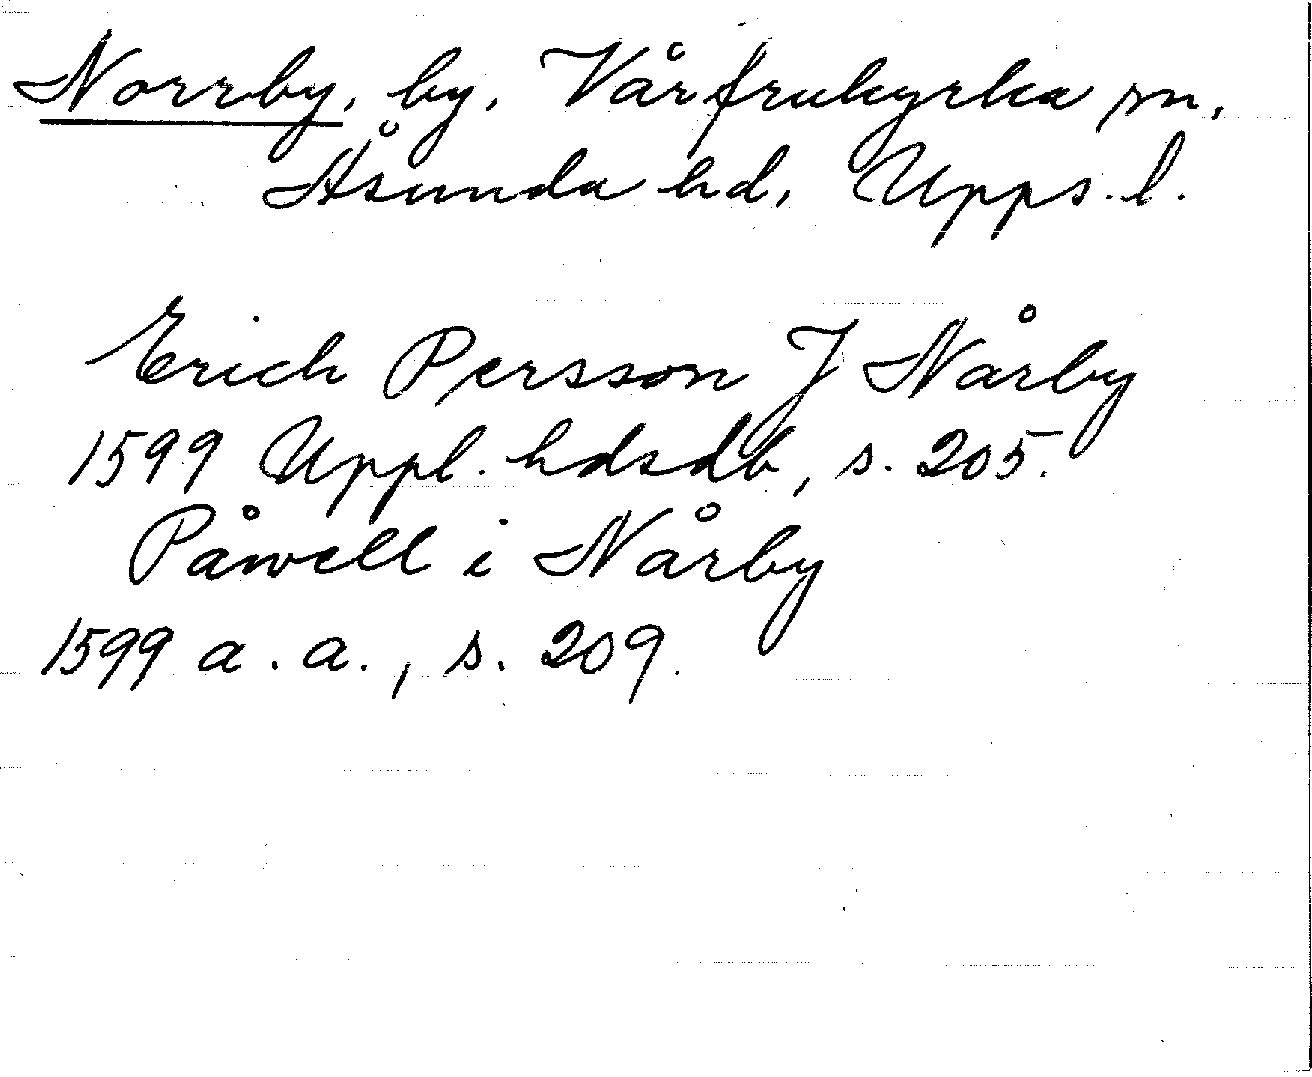 Norrby, by, Vårfrukyrka sn,
Åsunda hd, Upps. l.
Erich Persson J Nårby
1599 Uppl. hdsdb, s. 205.
Påwell i Nårby
1599 a. a., s. 209.